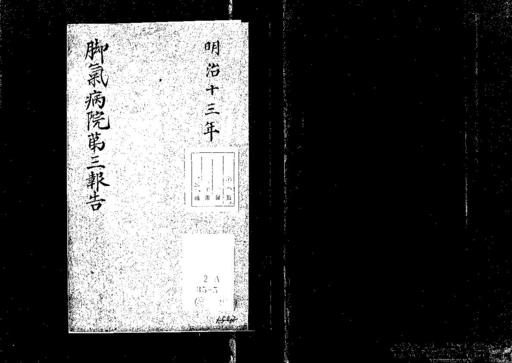 明治十三年
脚氣病院第三報告
2 A
35-5